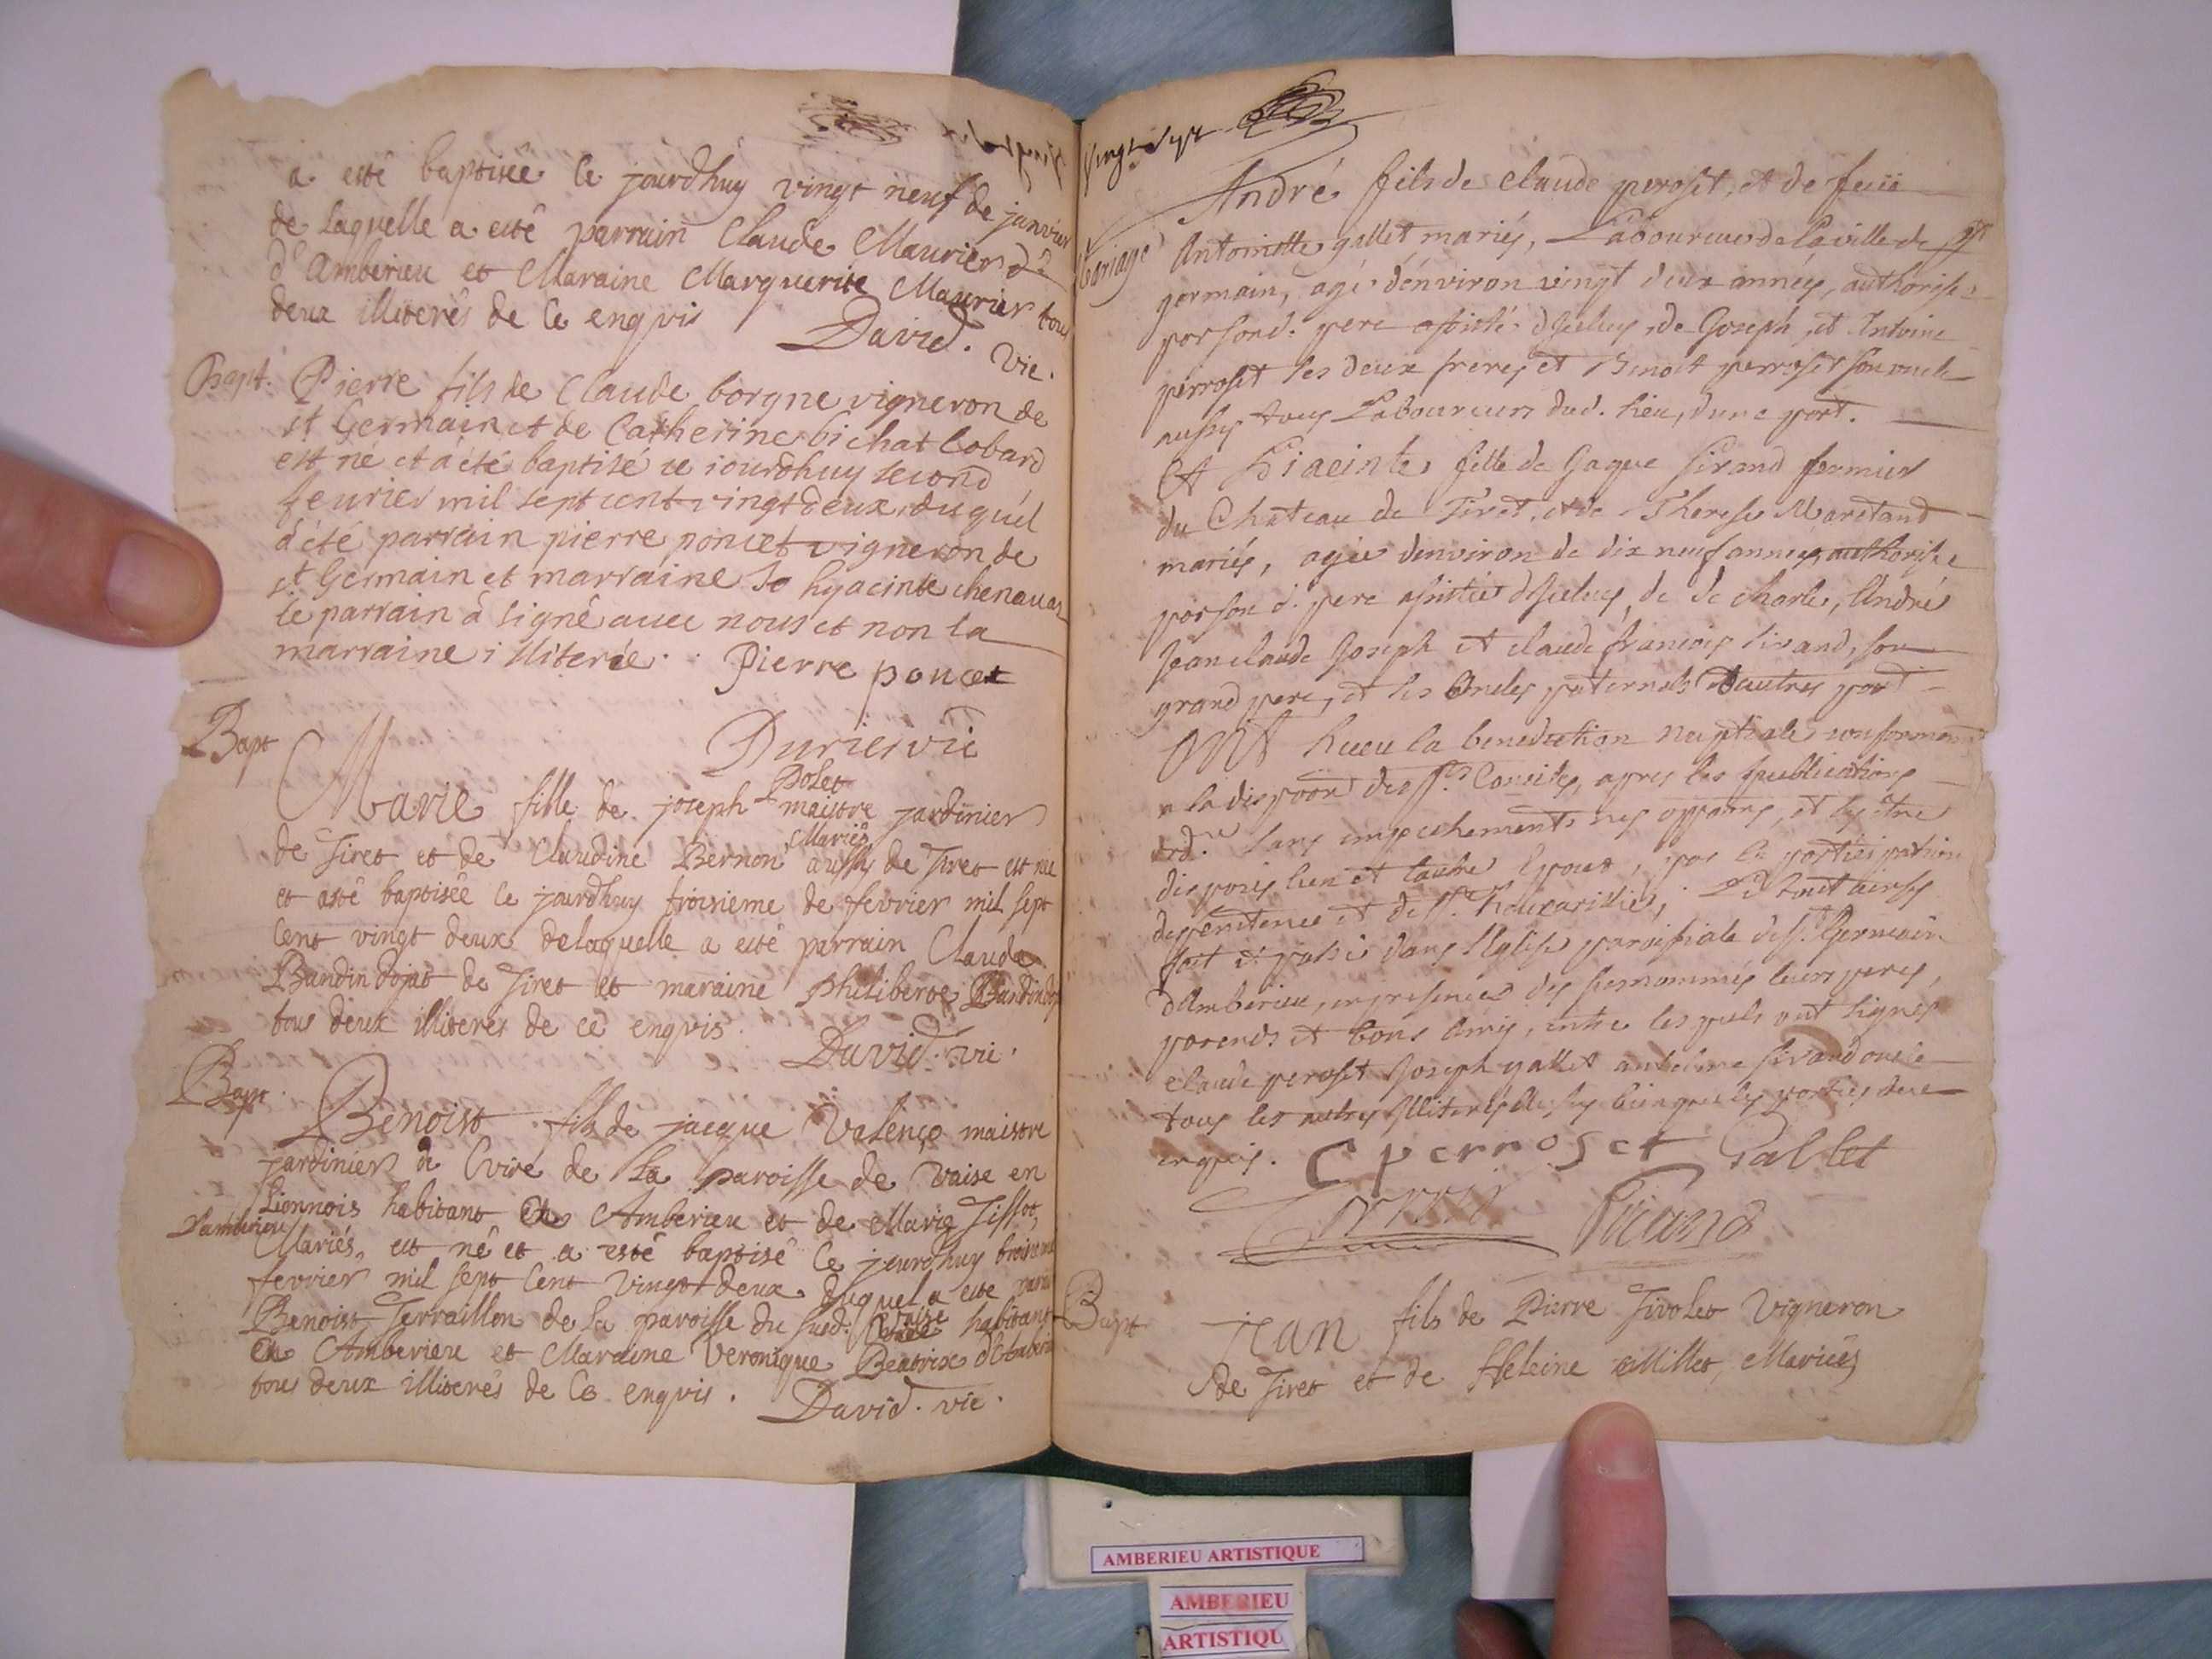 a esté baptisée ce jourdhuy vingt neuf de janvier
de laquelle a esté parrain Claude Maurier
d'Amberieu et Maraine Marguerite Maurier tous
deux illiterés de ce enquis David. vic.
Bapt. Pierre fils de Claude borgne vigneron de
st Germain et de Catherine bichat lobard
est né et a été baptisé ce iourdhuy second
feurier mil sept cent vingt deux, duquel
a été parrain pierre poncet vigneron de
st Germain et marraine hyacinte chenavaz
le parrain a signé avec nous et non la
marraine illiterée. Pierre poncet
Durier vic
Bapt
Polet
Marie fille de joseph maistre jardinier
Mariés
de Tiret et de Claudine Bernon aussy de Tiret est née
et asté baptisée ce jourdhuy troisieme de fevrier mil sept
Cent vingt deux de laquelle a esté parrain Claude
Baudin dojat de Tiret et maraine philiberte Baudin
tous deux illiteres de ce enquis.
David. vic.
Bapt.
Benoist fils de jacque Valençe maistre
jardinier de Cviré de la paroisse de Vaise en
Lionnois habitant en Amberieu et de Marie Tissot
d'amberieu
Mariés, est né et a esté baptisé ce jourdhuy troisieme
fevrier mil sept Cent Vingt deux duquel a esté parrain
Benoist Terraillon de la paroisse du susd. Vaise habitant
en Amberieu et Maraine Veronique Beatrix
tous deux illiterés de Ce enquis. David. vic.
Vingt sept
André fils de Claude peroset, et de feüe
Mariage Antoinette gallet mariés, Laboureur de la ville de St
germain, agé denviron vingt deux années, authorisé
par sond. pere assisté d'celuy, de Joseph, et Antoine
perroset ses deux freres, et Benoit perroset son oncle
aussy tous Laboureurs dud. lieu, dune part.
Et Hiacinte fille de Jaque Sirand fermier
du Chateau de Tiret, et de Therese Maretand
mariés, agée denviron de dix neuf années, authorisée
par son d. pere assistée d'celuy, de Charle, André
Jean claude Joseph et claude françois Sirand, son
grand pere, et ses Oncles paternels d'autres part
Ont Receu la benediction Nuptiale conformement
a la dispoon des Sts Conciles, apres les publications
ord.re Sans empechements ny oppoons, et sy être
disposés lun et lautre Epoux, par la participation
de penitence et de Ste Eucaristie, Le tout ainsy
fait et passé dans l'Eglise paroissiale de St Germain
dAmberieu, en presences des surnommés leurs peres,
parents et bons Amis, entre lesquels ont signés
claude peroset Joseph gallet anthelme sirand oncle
tous les autres Illiterés Aussy bien que les parties de ce
enquis. C perroset Gallet
Sirand
Bapt
jean fils de Pierre Tivolet Vigneron
de Tiret et de Heleine Millet, Mariés
AMBERIEU ARTISTIQUE
AMBERIEU
ARTISTIQU